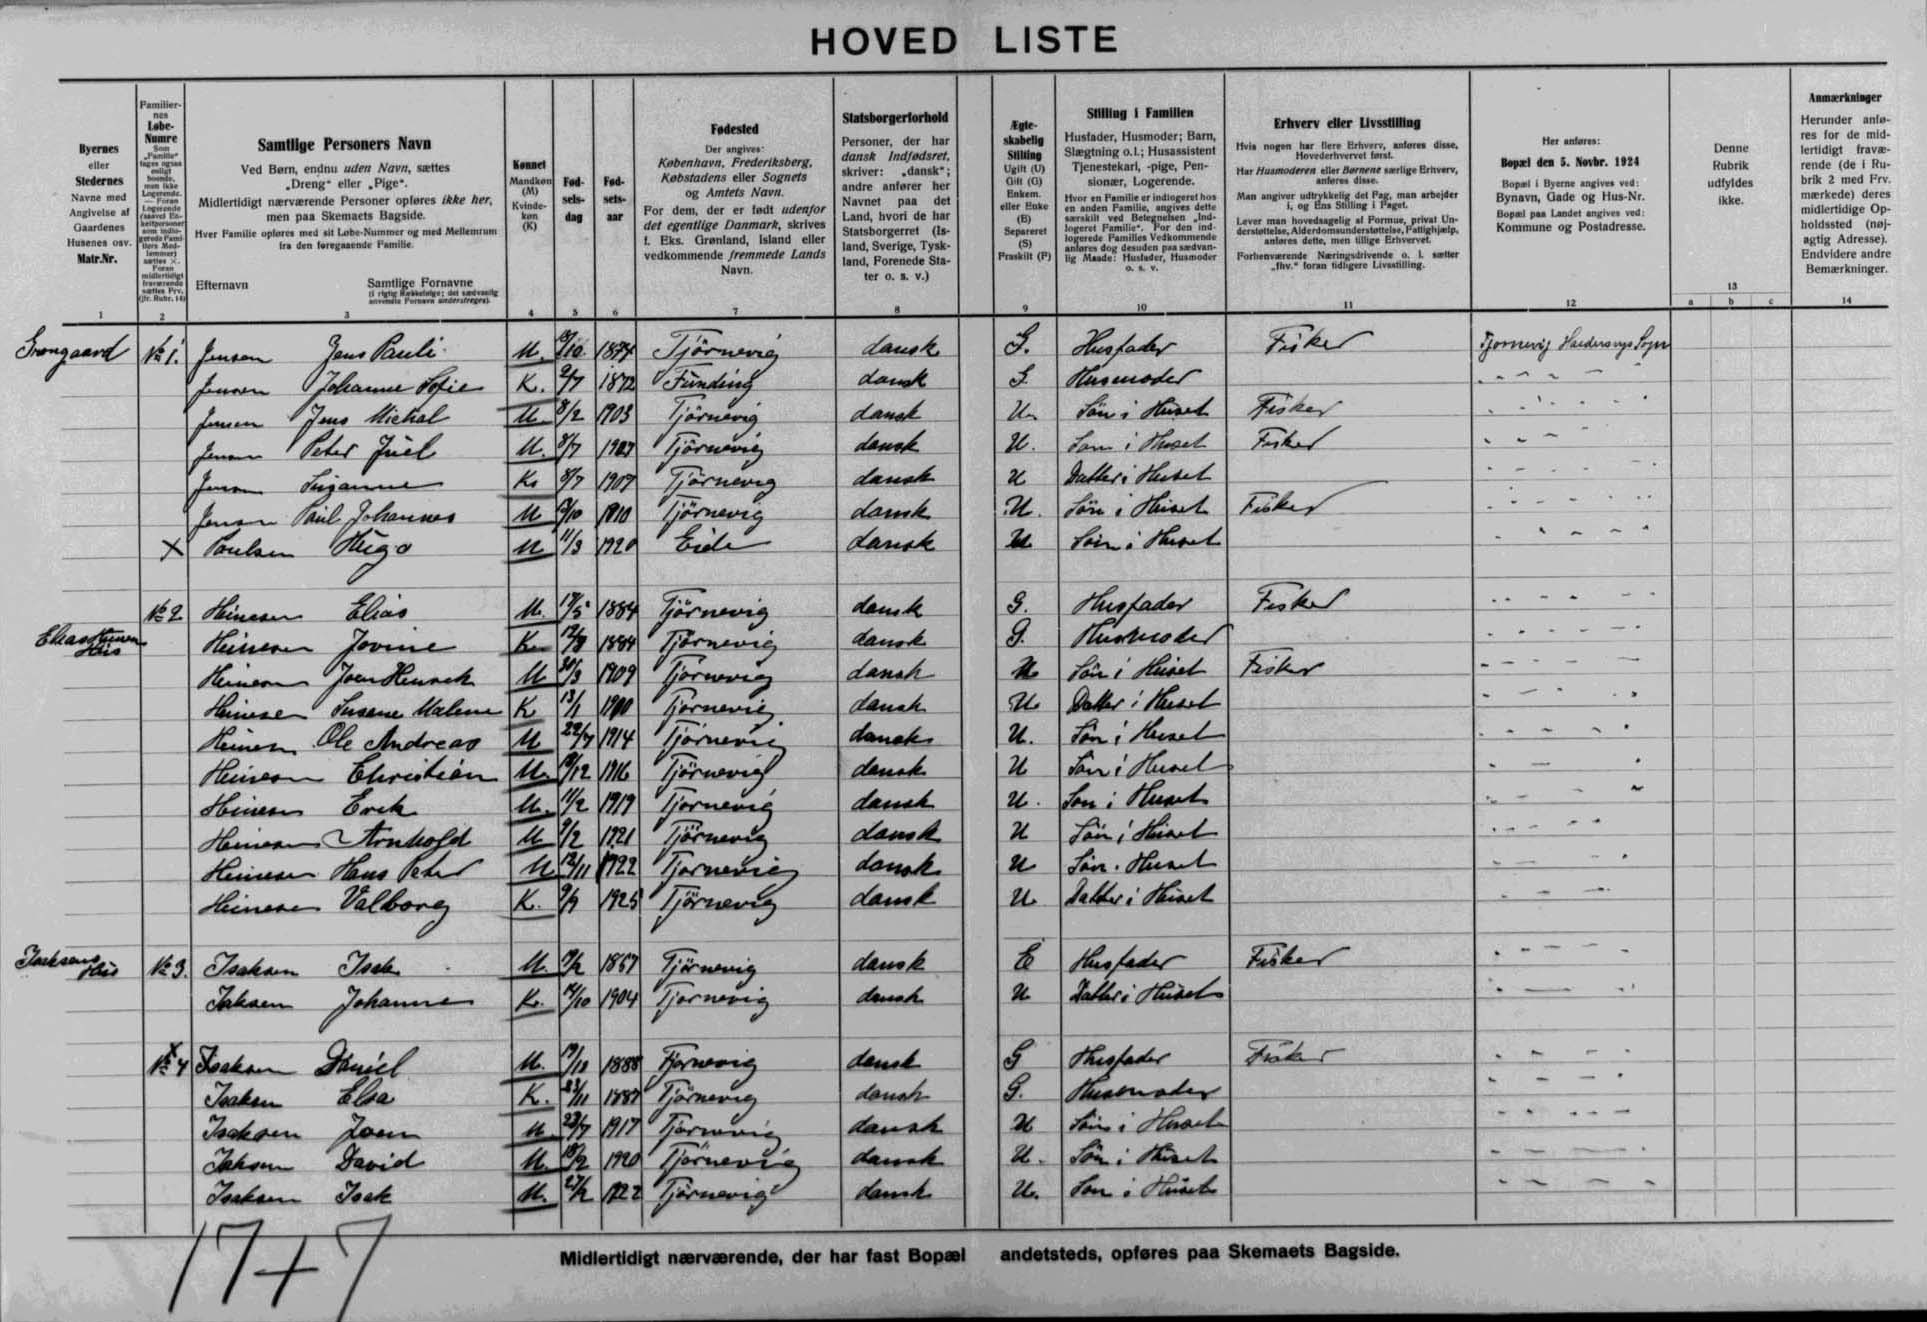 HOVED LISTE
Byernes
eller
Stedernes
Navne med
Angivelse af
Gaardenes
Husenes osv.
Matr.Nr.
1
Familier-
nes
Løbe-
Numre
Som
„Familie“
tages ogsaa
enligt
boende,
men ikke
Logerende.
— Foran
Logerende
(saavel En-
keltpersoner
som indlo-
gerede Fami-
liers Med-
lemmer)
sættes ×.
Foran
midlertidigt
fraværende
sættes Frv.
(jfr. Rubr. 14)
2
Samtlige Personers Navn
Ved Børn, endnu uden Navn, sættes
„Dreng“ eller „Pige“.
Midlertidigt nærværende Personer opføres ikke her,
men paa Skemaets Bagside.
Hver Familie opføres med sit Løbe-Nummer og med Mellemrum
fra den foregaaende Familie.
Efternavn
Samtlige Fornavne
(i rigtig Rækkefølge; det sædvanlig
anvendte Fornavn understreges).
3
Kønnet
Mandkøn
(M)
Kvinde-
køn
(K)
4
Fød-
sels-
dag
5
Fød-
sels-
aar
6
Fødested
Der angives:
København, Frederiksberg,
Købstadens eller Sognets
og Amtets Navn.
For dem, der er født udenfor
det egentlige Danmark, skrives
f. Eks. Grønland, Island eller
vedkommende fremmede Lands
Navn.
7
Statsborgerforhold
Personer, der har
dansk Indfødsret,
skriver: „dansk“;
andre anfører her
Navnet paa det
Land, hvori de har
Statsborgerret (Is-
land, Sverige, Tysk-
land, Forenede Sta-
ter o. s. v.)
8
Ægte-
skabelig
Stilling
Ugift (U)
Gift (G)
Enkem.
eller Enke
(E)
Separeret
(S)
Fraskilt (F)
9
Stilling i Familien
Husfader, Husmoder; Barn,
Slægtning o.l.; Husassistent
Tjenestekarl, -pige, Pen-
sionær, Logerende.
Hvor en Familie er indlogeret hos
en anden Familie, angives dette
særskilt ved Betegnelsen „Ind-
logeret Familie“. For den ind-
logerede Families Vedkommende
anføres dog desuden paa sædvan-
lig Maade: Husfader, Husmoder
o. s. v.
10
Erhverv eller Livsstilling
Hvis nogen har flere Erhverv, anføres disse,
Hovederhvervet først.
Har Husmoderen eller Børnene særlige Erhverv,
anføres disse.
Man angiver udtrykkelig det Fag, man arbejder
i, og Ens Stilling i Faget.
Lever man hovedsagelig af Formue, privat Un-
derstøttelse, Alderdomsunderstøttelse, Fattighjælp,
anføres dette, men tillige Erhvervet.
Forhenværende Næringsdrivende o. l. sætter
„fhv.“ foran tidligere Livsstilling.
11
Her anføres:
Bopæl den 5. Novbr. 1924
Bopæl i Byerne angives ved:
Bynavn, Gade og Hus-Nr.
Bopæl paa Landet angives ved:
Kommune og Postadresse.
12
Denne
Rubrik
udfyldes
ikke.
13
a b c
Anmærkninger
Herunder anfø-
res for de mid-
lertidigt fravæ-
rende (de i Ru-
brik 2 med Frv.
mærkede) deres
midlertidige Op-
holdssted (nøj-
agtig Adresse).
Endvidere andre
Bemærkninger.
14
№ 1. Jensen Jens Pauli M. 1874 Tjörnevig dansk G. Husfader Fisker Tjornevig Haldersvigs Sogn
Jensen Johanne Sofie K. 2/7 1872 Funding dansk G. Husmoder
Jensen Jens Michal M. 8/2 1903 Tjörnevig dansk U. Sön i Huset Fisker
Jensen Peter Juel M. 8/7 Tjörnevig dansk U. Son i Huset Fisker
Jensen Susanne K. 8/7 1907 Tjörnevig dansk U Datter i Huset
Jensen Paul Johannes M 9/10 1910 Tjörnevig dansk U. Sön i Huset Fisker
× Poulsen Hugo M 11/3 1920 Eide dansk U Sön i Huset
№ 2 Heinesen Elias M. 1884 Tjörnevig dansk G. Husfader Fisker
Elias Heinesens Hüs
Heinesen Jovine K. 12/8 1884 Tjörnevig dansk G. Husmoder
Heinesen Joen Henrek M 30/3 1909 Tjornevig dansk U Sön i Huset Fisker
Heinesen Susanne Malene K 13/1 Tjornevig dansk U Datter i Huset
Heinesen Ole Andreas M 22/7 1914 Tjörnevig dansk U. Sön i Huset
Heinesen Christian M. 18/12 1916 Tjörnevig dansk U Sön i Huset
Heinesen Erik M. 11/2 1919 Tjornevig dansk U. Son i Huset
Heinesen Arnhold M 9/2 1921 Tjörnevig dansk U Sön i Huset
Heinesen Hans Peter M 12/11 1922 Tjornevig dansk U Sön i Huset
Heinesen Valborg K. 9/9 1925 Tjörnevig dansk U Datter i Huset
Isaksens Hüs № 3. Isaksen Isak M. 1867 Tjörnevig dansk E Husfader Fisker
Isaksen Johanne K. 14/10 1904 Tjornevig dansk U Datter i Huset
× № 4 Isaksen Daniel M. 19/12 1888 Tjornevig dansk G Husfader Fisker
Isaksen Elsa K. 23/11 1887 Tjörnevig dansk G. Husmoder
Isaksen Joen M. 23/7 1917 Tjörnevig dansk U Sön i Huset
Isaksen David M. 18/2 1920 Tjörnevig dansk U. Sön i Huset
Isaksen Isak M. 27/2 1922 Tjörnevig dansk U. Son i Huset
17+7
Midlertidigt nærværende, der har fast Bopæl andetsteds, opføres paa Skemaets Bagside.